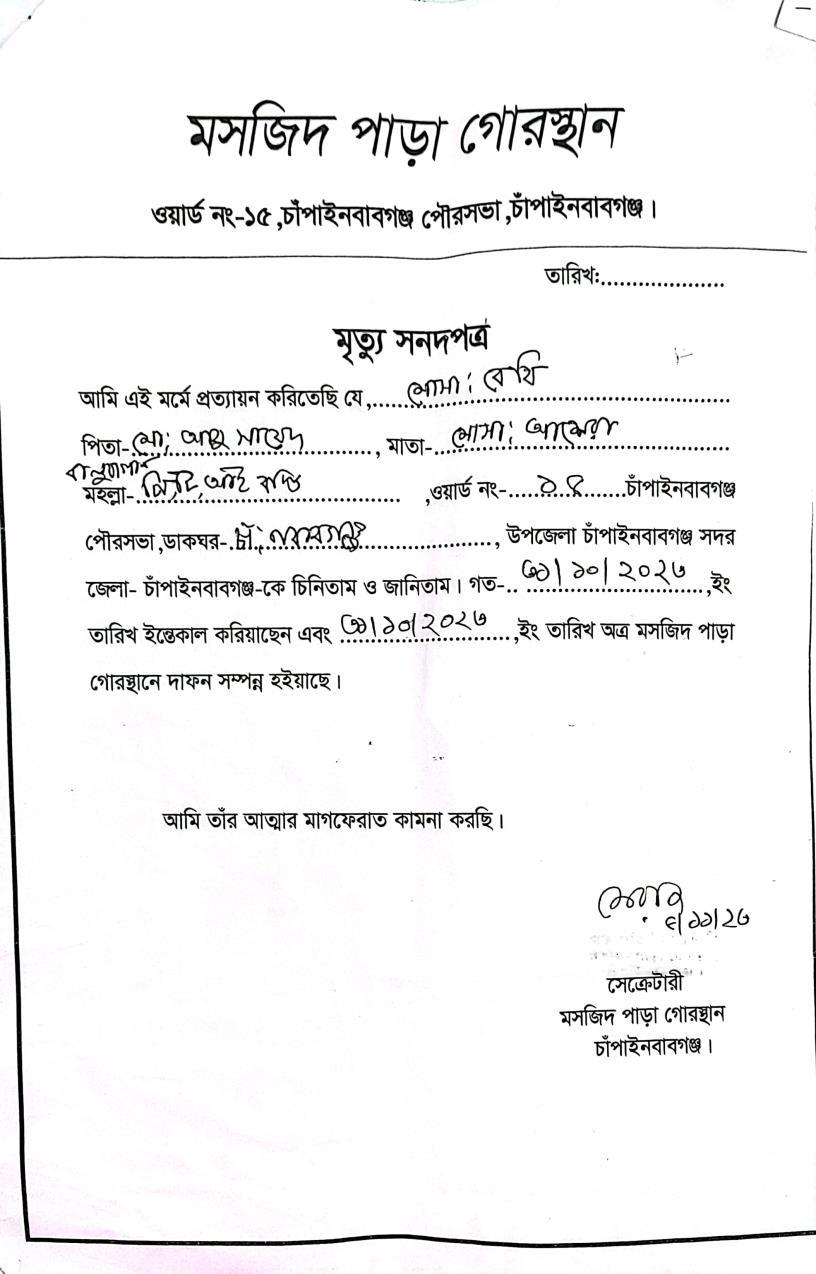 মসজিদ পাড়া গোরস্থান
ওয়ার্ড নং-১৫,চাঁপাইনবাবগঞ্জ পৌরসভা,চাঁপাইনবাবগঞ্জ।
তারিখঃ.....................
মৃত্যু সনদপত্র
আমি এই মর্মে প্রত্যায়ন করিতেছি যে, মোসা: বেথি
পিতা- মো: আবু সায়েদ, মাতা- মোসা:
মহল্লা- ,ওয়ার্ড নং- চাঁপাইনবাবগঞ্জ
পৌরসভা,ডাকঘর- চাঁ: নবাবগঞ্জ, উপজেলা চাঁপাইনবাবগঞ্জ সদর
জেলা- চাঁপাইনবাবগঞ্জ-কে চিনিতাম ও জানিতাম। গত- ৩১/১০/২০২৩,ইং
তারিখ ইন্তেকাল করিয়াছেন এবং ৩১/১০/২০২৩,ইং তারিখ অত্র মসজিদ পাড়া
গোরস্থানে দাফন সম্পন্ন হইয়াছে।
আমি তাঁর আত্মার মাগফেরাত কামনা করছি।
সেক্রেটারী
মসজিদ পাড়া গোরস্থান
চাঁপাইনবাবগঞ্জ।